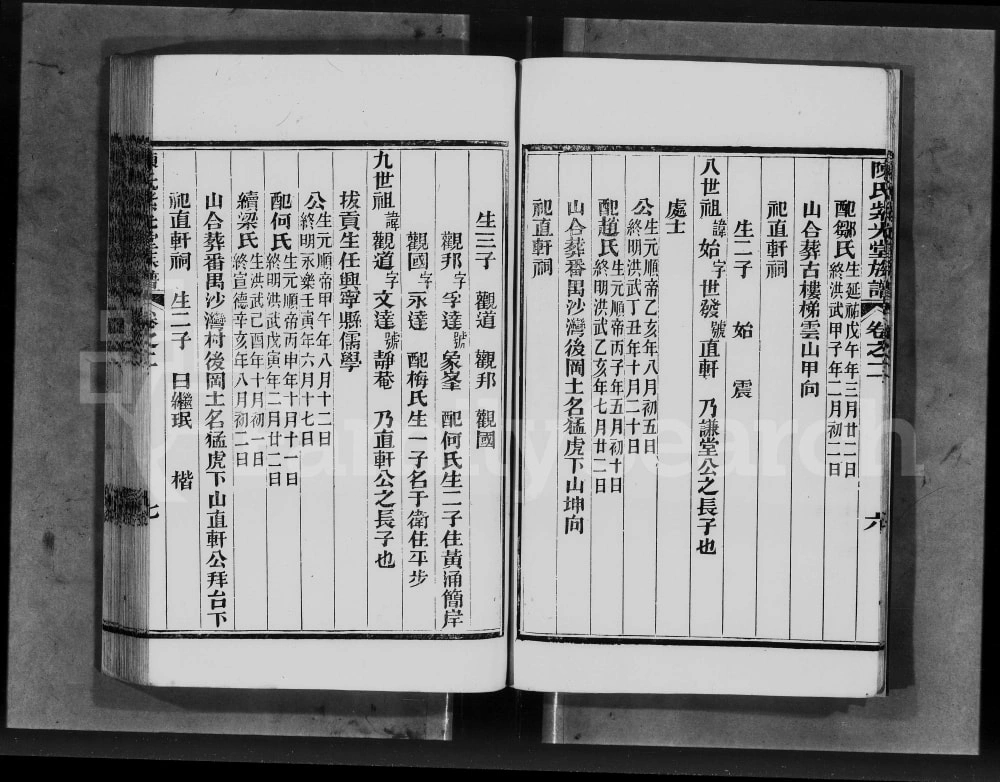 陳氏紫光堂族譜 卷之二 六
配鄒氏 生延祐戊午年三月廿二日 終洪武甲子年二月初二日
山合葬古樓梯雲山甲向
祀直軒祠
生二子 始 震
八世祖 諱 始 字 世發 號 直軒 乃謙堂公之長子也
處士
公 生元順帝乙亥年八月初五日 終明洪武丁丑年十月二十日
配趙氏 生元順帝丙子年五月初十日 終明洪武乙亥年七月廿二日
山合葬番禺沙灣後岡土名猛虎下山坤向
祀直軒祠
生三子 觀道 觀邦 觀國
觀邦 字 孚達 號 象峯 配何氏生二子住黃涌簡岸
觀國 字 永達 配梅氏生一子名于衛住平步
九世祖 諱 觀道 字 文達 號 靜菴 乃直軒公之長子也
拔貢生任興寧縣儒學
公 生元順帝甲午年八月十二日 終明永樂壬寅年六月十七日
配何氏 生元順帝丙申年十月十一日 終明洪武戊寅年二月廿二日
續梁氏 生洪武己酉年十月初一日 終宣德辛亥年八月初二日
山合葬番禺沙灣村後岡土名猛虎下山直軒公拜台下
祀直軒祠 生二子 曰繼珉 楷
七
familysearch